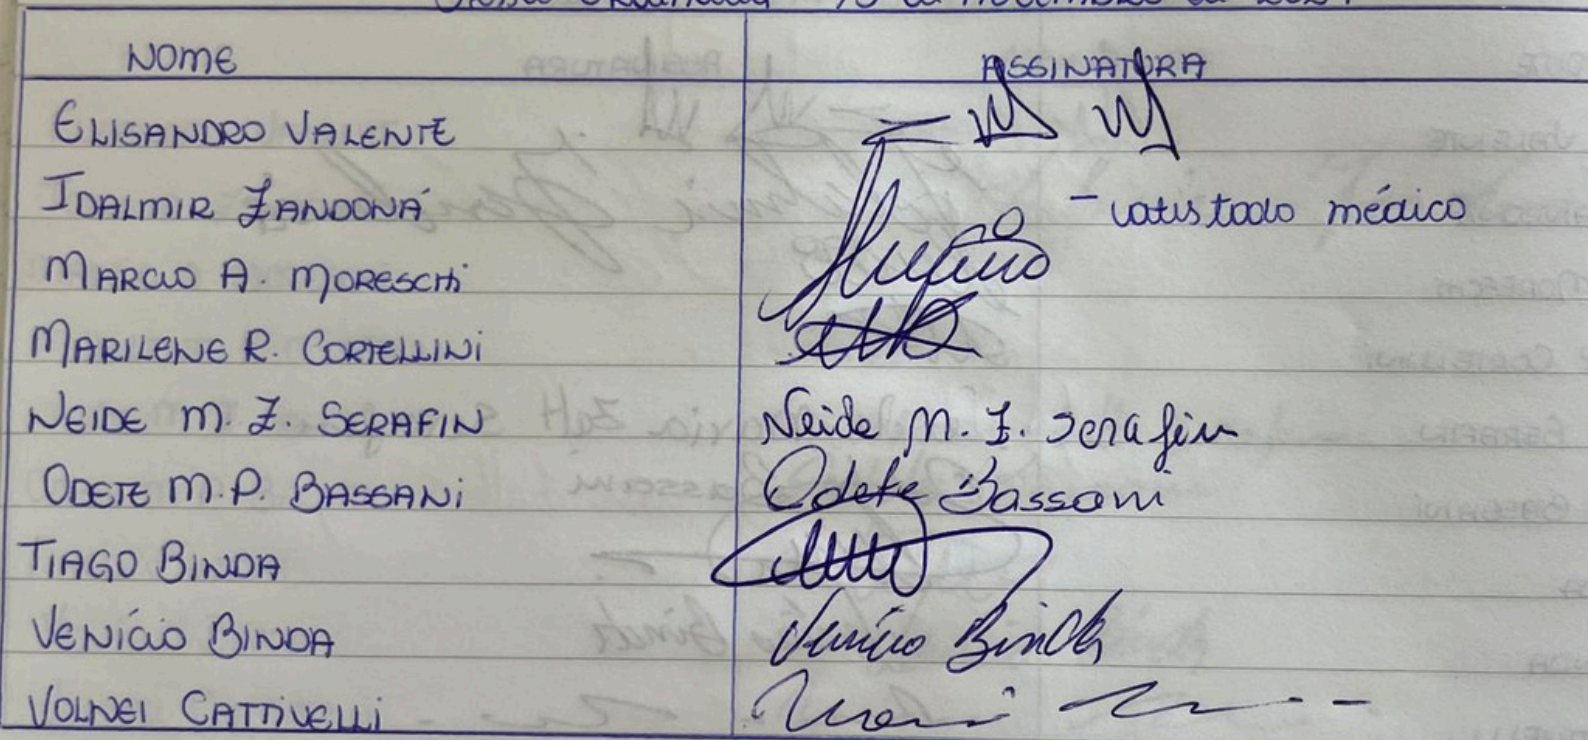 de novembro de
NOME ASSINATURA
ELISANDRO VALENTE
IDALMIR ZANDONÁ - médico
MARCIO A. MORESCHI
MARILENE R. CORTELLINI
NEIDE M. Z. SERAFIN Neide M. Z. Serafin
ODETE M.P. BASSANI Odete Bassani
TIAGO BINDA
VENÍCIO BINDA Venício Binda
VOLNEI CATTIVELLI